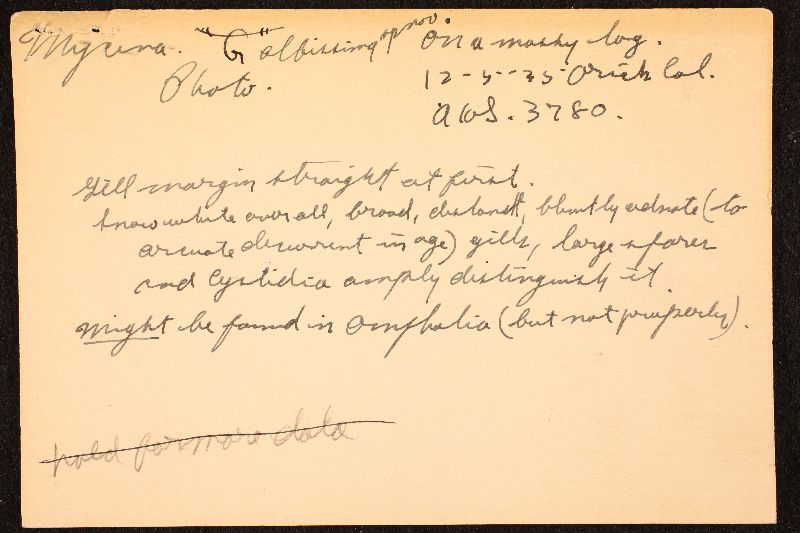 Mycena. "G" albissima sp nov. On a mossy log.
Photo. 12-5-35 Orick Cal.
AHS. 3780.
Gill margin straight at first.
Snow white over all, broad, distant, bluntly adnate (to
arcuate decurrent in age) gills, large spores
and cystidia amply distinguish it.
Might be found in Omphalia (but not properly).
hold for more data